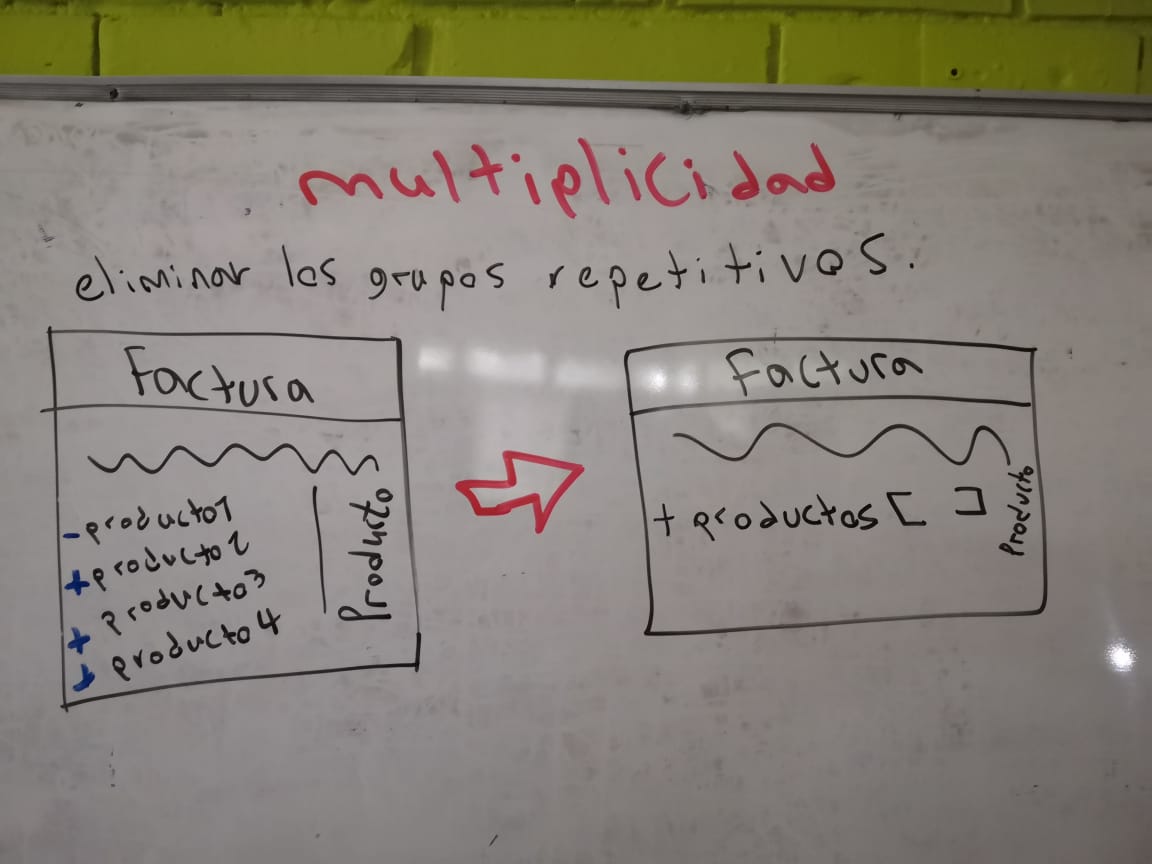 multiplicidad
eliminar los grupos repetitivos.
Factura
- producto1
+ producto2
+ producto3
+ producto4
Producto
Factura
+ productos [ ]
Producto